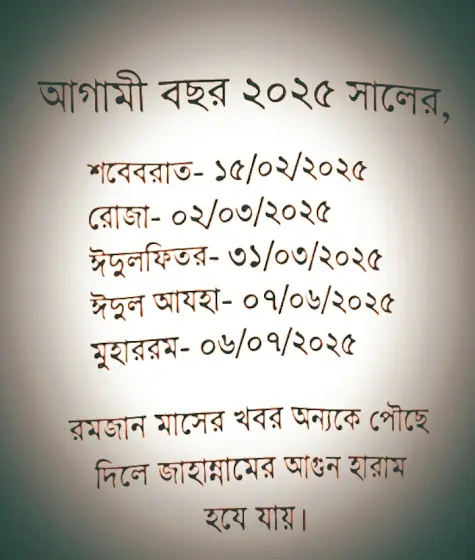 আগামী বছর ২০২৫ সালের,
শবেবরাত- ১৫/০২/২০২৫
রোজা- ০২/০৩/২০২৫
ঈদুলফিতর- ৩১/০৩/২০২৫
ঈদুল আযহা- ০৭/০৬/২০২৫
মুহাররম- ০৬/০৭/২০২৫
রমজান মাসের খবর অন্যকে পৌছে
দিলে জাহান্নামের আগুন হারাম
হযে যায়।